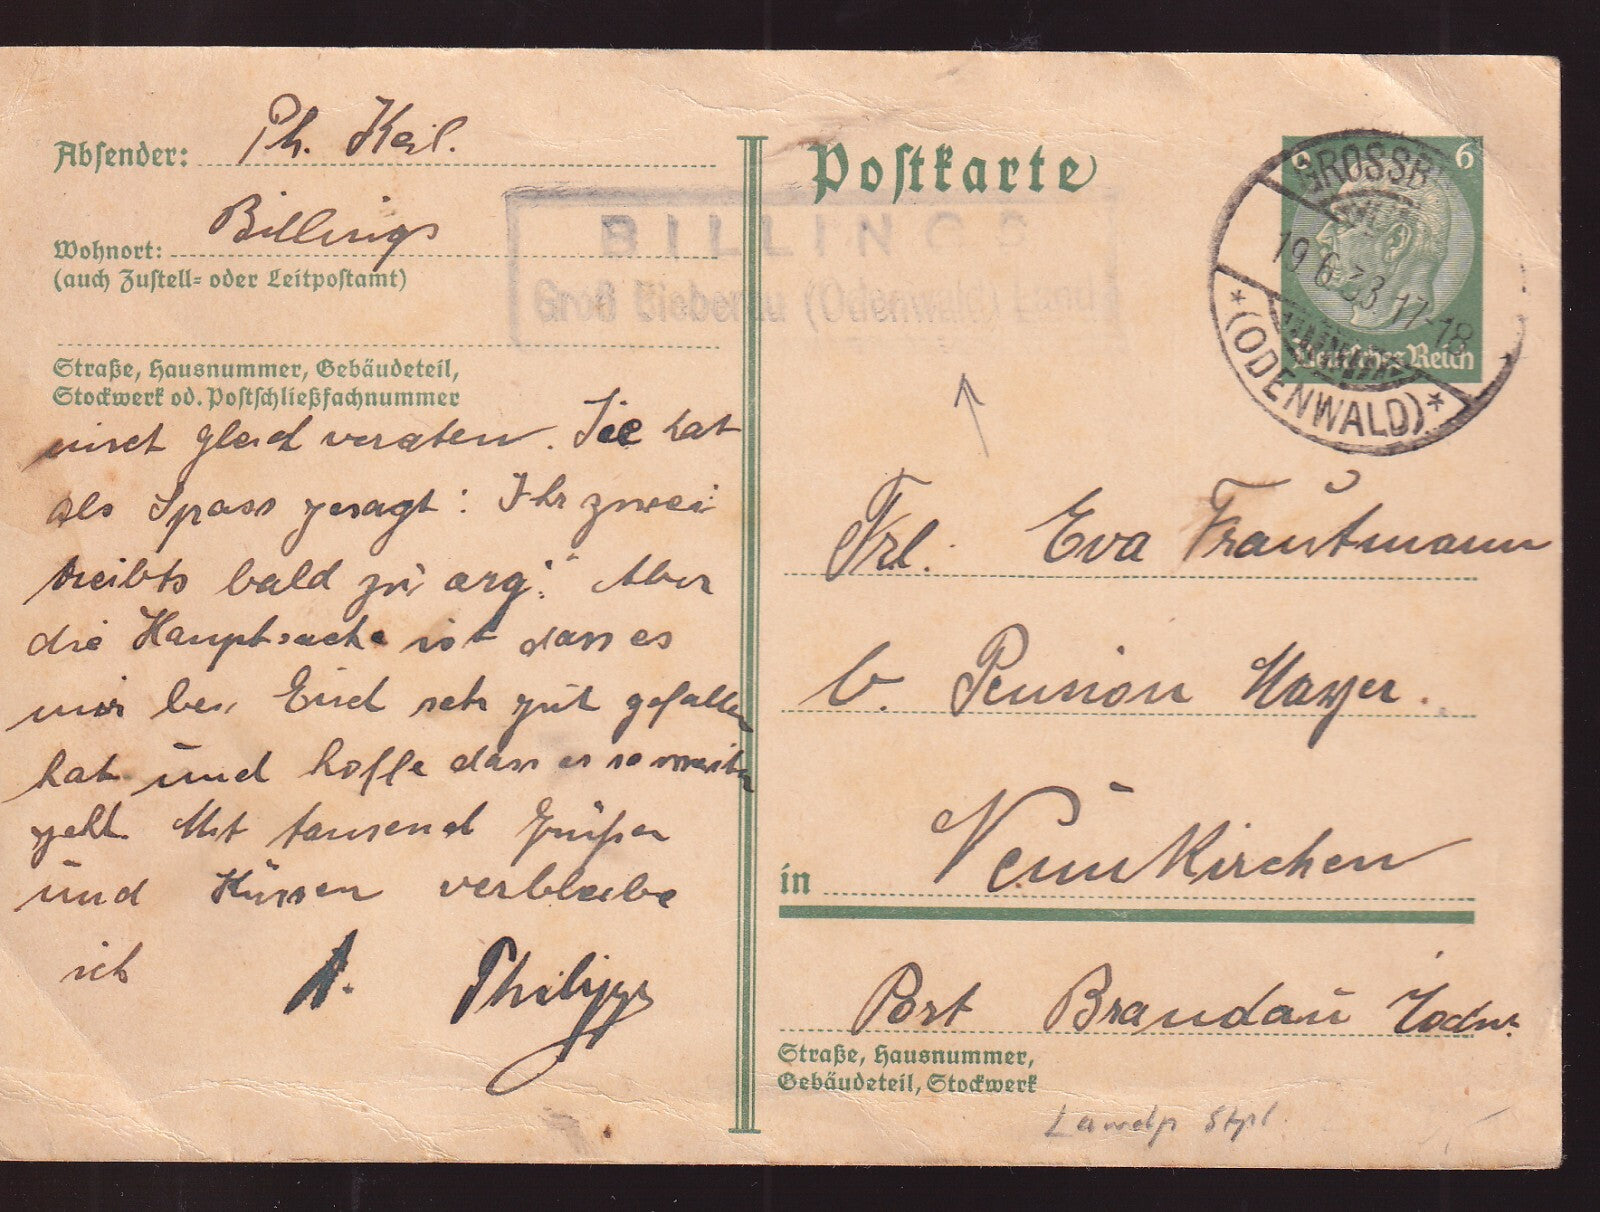 Absender: Ph. Keil.
Wohnort: Billings
(auch Zustell- oder Leitpostamt)
Straße, Hausnummer, Gebäudeteil,
Stockwerk od. Postschließfachnummer
gleich veraten. Sie hat
als Spass gesagt: Ihr zwei
treibts bald zu arg." Aber
die Hauptsache ist dass es
mir bei Euch sehr gut gefallen
hat und hoffe dass es so weiter
geht. Mit tausend Grüßen
und Küssen verbleibe
ich A. Philipp
BILLINGS
Groß Bieberau (Odenwald) Land
Postkarte
6
Deutsches Reich
GROSSB
19.6.33.17-18
*(ODENWALD)*
Frl. Eva Trautmann
b. Pension Mayer.
in Neunkirchen
Post Brandau i. Odw.
Straße, Hausnummer,
Gebäudeteil, Stockwerk
Landp Stpl.